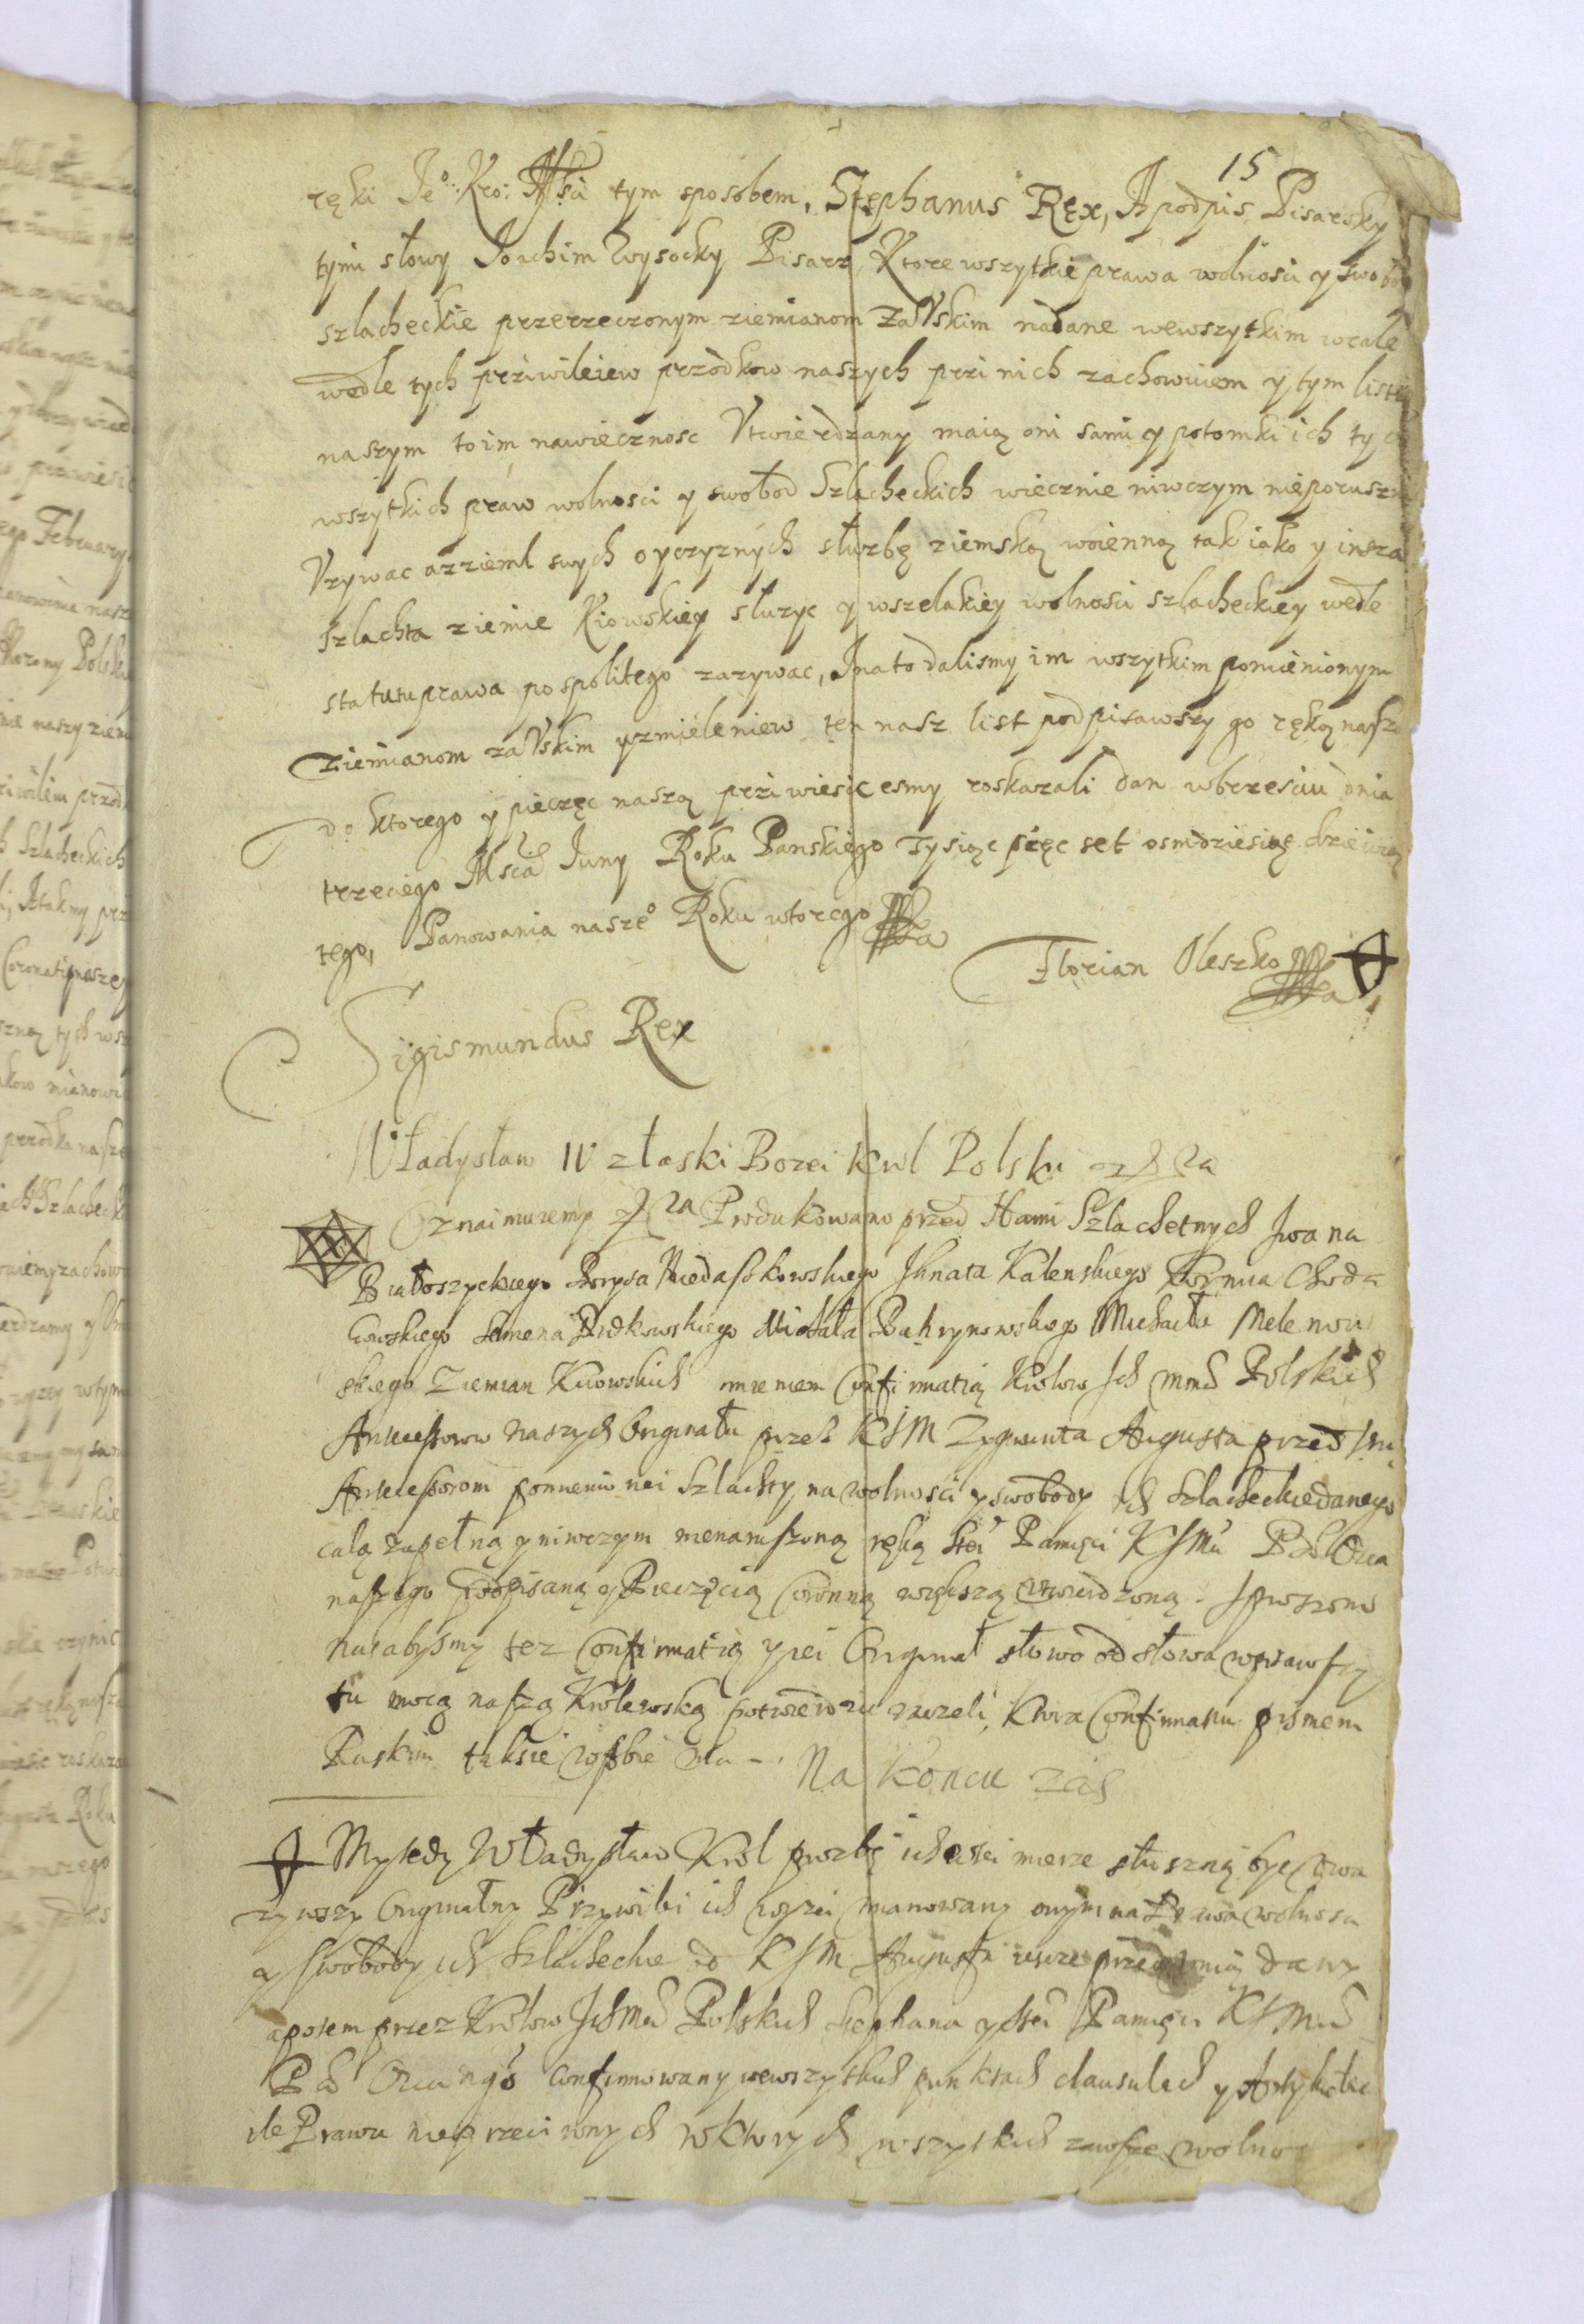 15
ręki Je°: Kro: Msci tym sposobem, Stephanus Rex, A podpis Pisarsky
tymi słowy Joachim Wysocky Pisarz, Ktore wszytkie prawa wolnosci y swobo
szlacheckie przerzeczonym ziemianom ZaVskim nadane wewszytkim wcale
wedle tych priwileiew przodkow naszych pri nich zachowuiem y tym liste
naszym to im nawiecznosc Vtwierdzamy maią oni sami y potomki ich tyc
wszytkich praw wolnosci y swobod Szlacheckich wiecznie niwczym nieporuszn
Vzywac a z zieml swych oyczyznych służbę ziemską woienną tak iako y insza
szlachta ziemie Kiowskiey służyc y wszelakiey wolnosci szlacheckiey wedle
statutu prawa pospolitego zazywac, Ina to dalismy im wszytkim pomienionym
Ziemianom zaVskim yzmieleniew ten nasz list podpisawszy go ręką nasz
do ktorego y pieczęc naszą priwiesic esmy roskazali dan wbrzesciu dnia
trzeciego Msca Juny Roku Panskiego Tysiąc pięc set osmdziesiąt dziewią
tego, Panowania nasze° Roku wtorego
Florian Oleszko
Sigismundus Rex
Władysław IV z łaski Bozei krol Polski
Oznaimuiemy Produkowano przed Nami Szlachetnych Jwana
Białoszyckiego Borysa Niedaszkowskiego Jhnata Kalenskiego Chod
kowskiego Semena Didkowskiego Michała Bahrynowskiego Michaiła Meleniow
skiego Ziemian Kiiowskich imieniem Confirmatią Krolow Jch mmci Polskich
Antecessorow naszych Originału przez KJM Zygmunta Augusta przed
Antecessorom pomienionei Szlachty na wolnosci y swobody ich Szlacheckie danego
całą zupełną y niwczym nienaruszoną ręką Stei Pamięci KJMci Oica
naszego podpisaną y Pieczęcią Coronną większą utwierdzoną. Jproszono
nas abysmy tez Confirmatią y iei Originał słowo od słowa wpisawszy
tu mocą naszą Krolewską potwierdzic raczeli, Ktora Confirmatia pismem
Ruskim tak sie w sobie ma –
Na koncu zas
My tedy Władysław Krol prozbę ich w tei mierze słuszną byc uwa
zywszy Originalny Przywilei ich wyzei mianowany onym na Prawa wolnosci
y Swobody ich Szlacheckie od KJM Augusta ieszcze przed Unią dany
apotem przez Krolow Jchmci Polskich Stephana y Stei Pamięci KJMci
Oica ngo confirmowany wewszystkich punktach clausulach y Artykułac
ile Prawu nieprzeciwnych wktorych wszystkich zawsze wolno